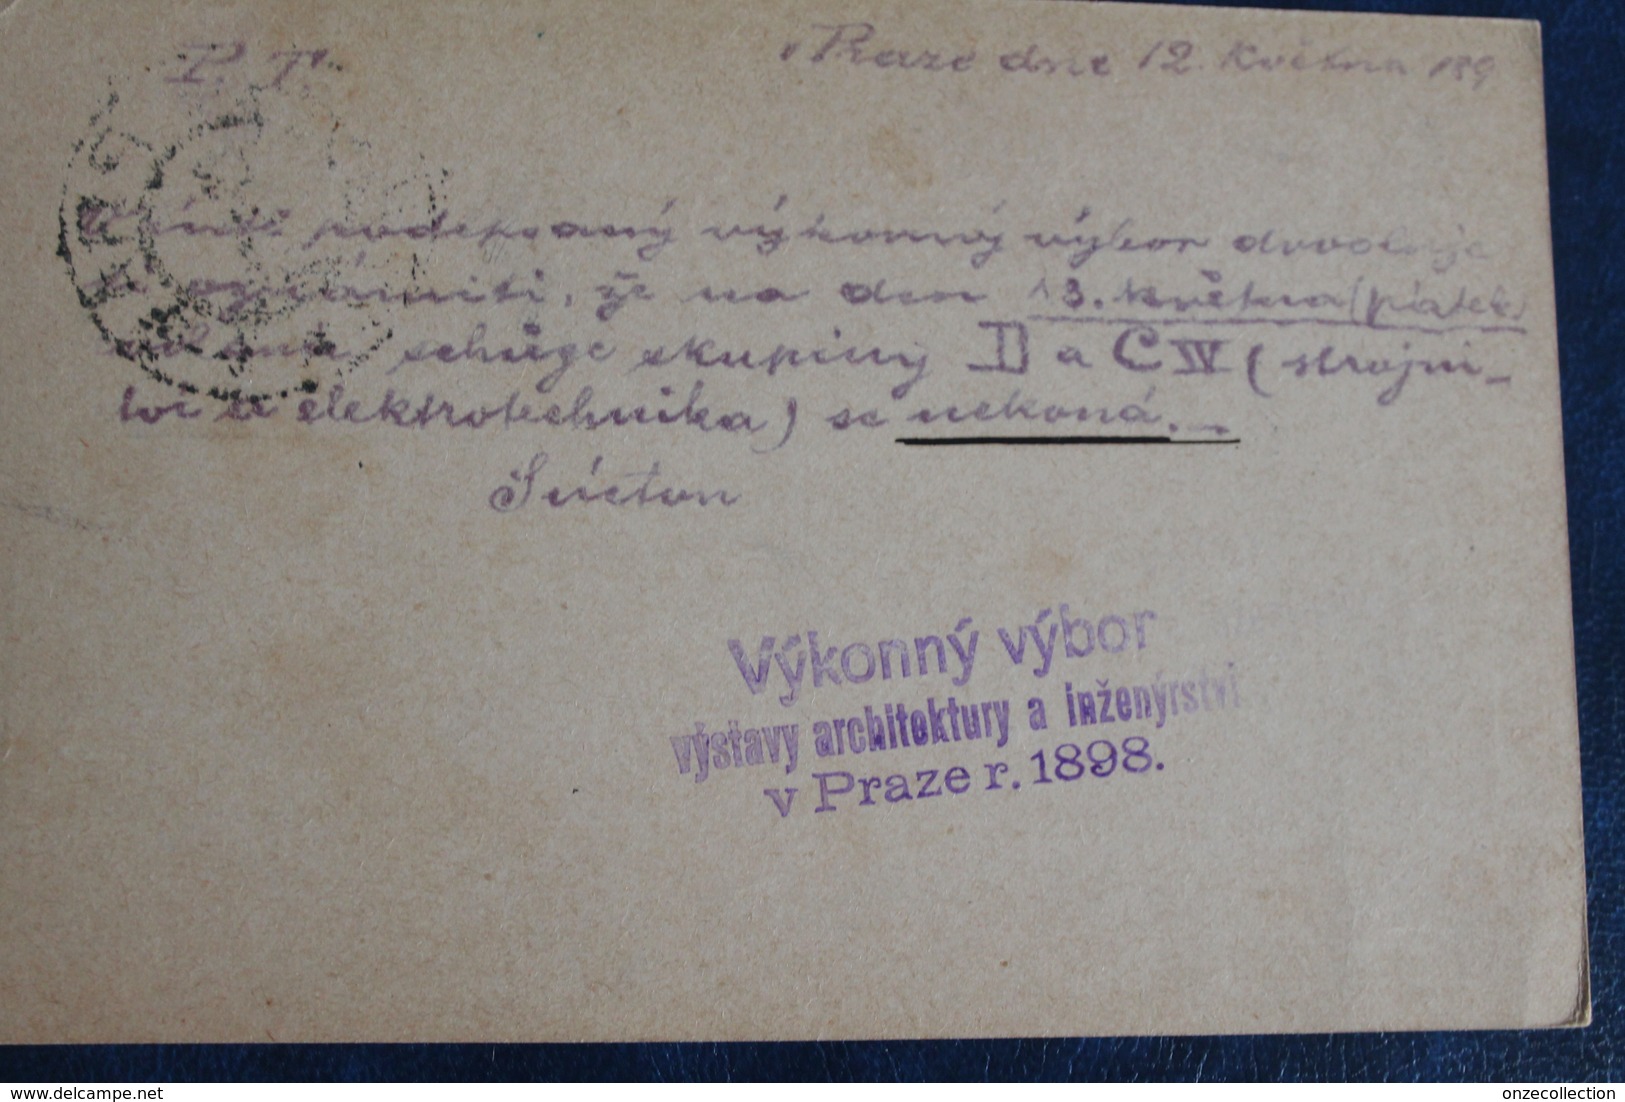 P. T.
v Praze dne 12. Května 189
podepsaný výkonný výbor dovoluje
oznámiti, že na den 13. května (pátek
schůze skupiny D a C IV (strojni-
ctví a elektrotechnika) se nekoná.
S úctou
Výkonný výbor
výstavy architektury a inženýrství
v Praze r. 1898.
delcampe.net
onzecollection